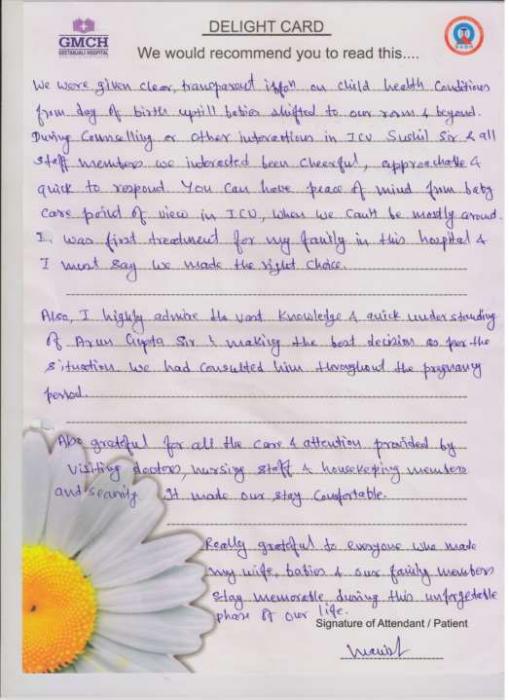 DELIGHT CARD
GMCH
GEETANJALI HOSPITAL
We would recommend you to read this....
We were given clear, transparent info on child health conditions
from day of birth uptill babies shifted to our room & beyond.
During Counselling or other interactions in ICU Sushil Sir & all
staff members we interacted been cheerful, approachable &
quick to respond. You can have peace of mind from baby
care point of view in ICU, when we can't be mostly around.
It was first treatment for my family in this hospital &
I must say we made the right choice.
Also, I highly admire the vast knowledge & quick understanding
of Arun Gupta Sir & making the best decision as per the
situation. We had consulted him throughout the pregnancy
period.
Also grateful for all the care & attention provided by
visiting doctors, nursing staff & housekeeping members
and security. It made our stay comfortable.
Really grateful to everyone who made
my wife, babies & our family members
stay memorable during this unforgetable
phase of our life.
Signature of Attendant / Patient